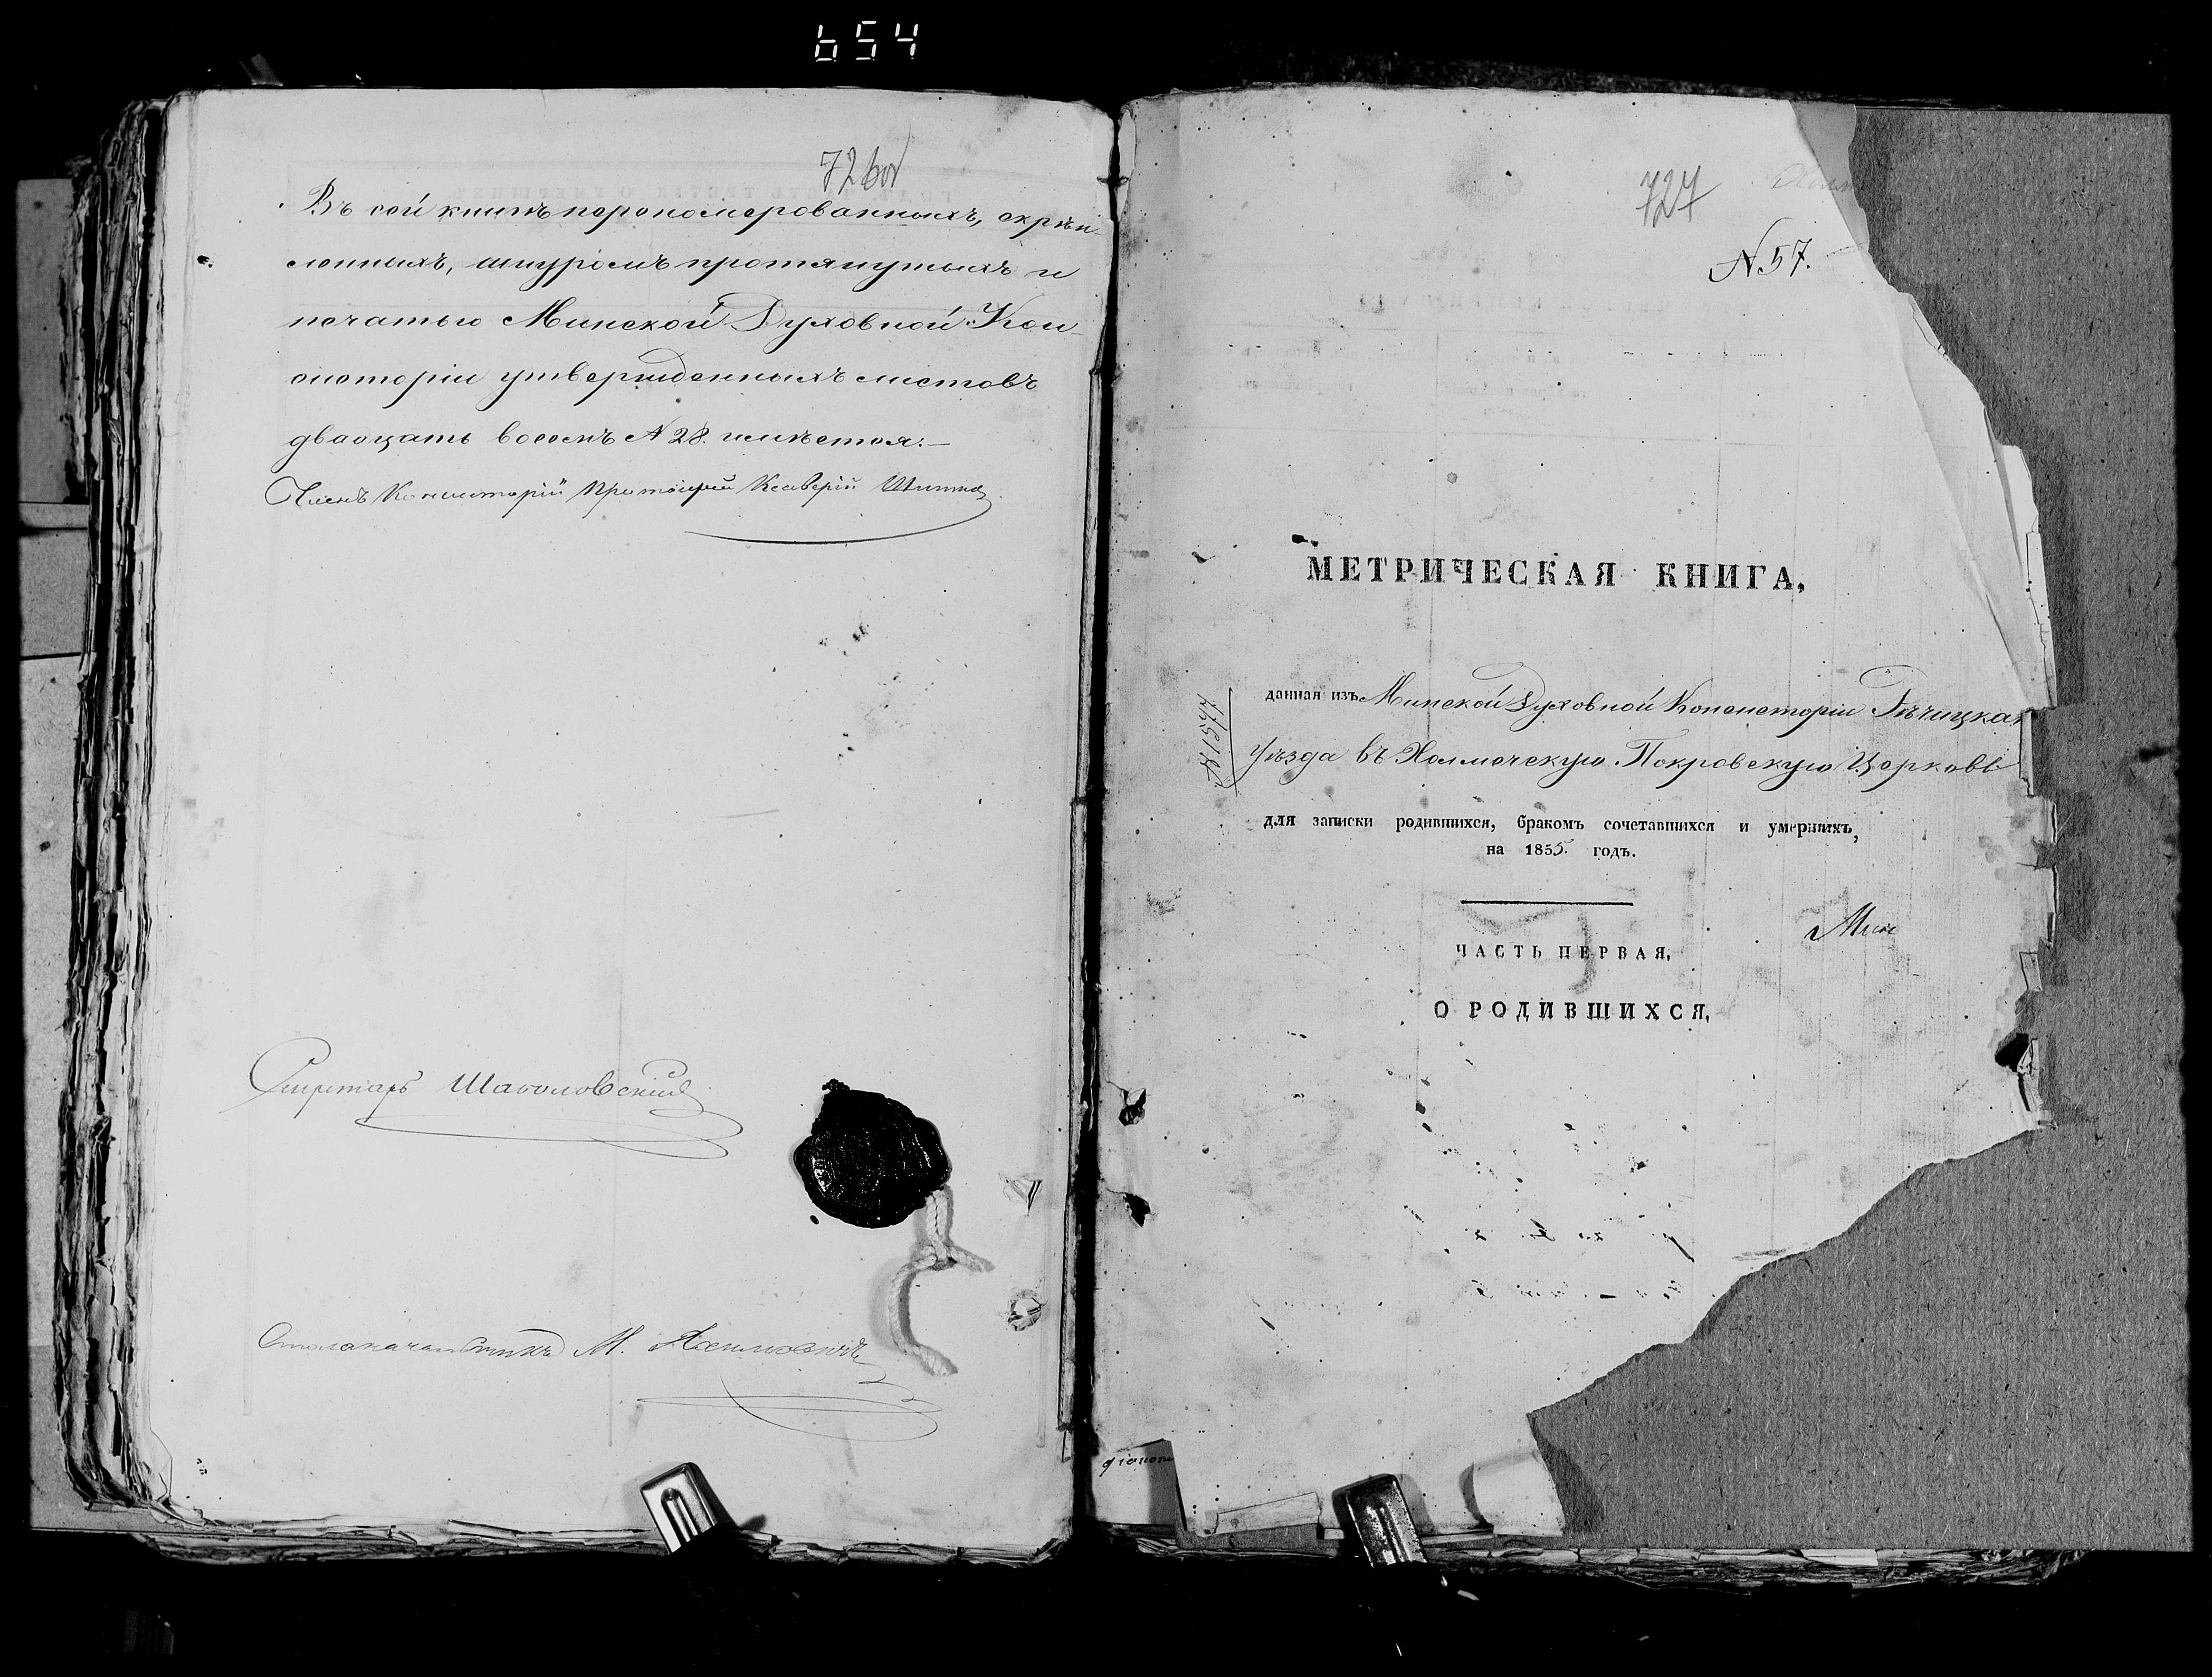 654
726об
Въ сей книгѣ перономерованныхъ, скрѣп-
ленныхъ, шнуромъ протянутыхъ и
печатью Минской Духовной Кон-
систоріи утвержденныхъ листовъ
двадцать восемъ № 28. имѣется.—
Членъ Консисторіи Протоіерей
Секретарь
Столоначальникъ М.
727
N 57.
МЕТРИЧЕСКАЯ КНИГА,
данная изъ Минской Духовной Консисторіи Рѣчицкаг
Уѣзда въ Холмечскую Покровскую Церковь
№ 1577
для записки родившихся, бракомъ сочетавшихся и умершихъ,
на 1855. годъ.
Мин
ЧАСТЬ ПЕРВАЯ,
О РОДИВШИХСЯ,